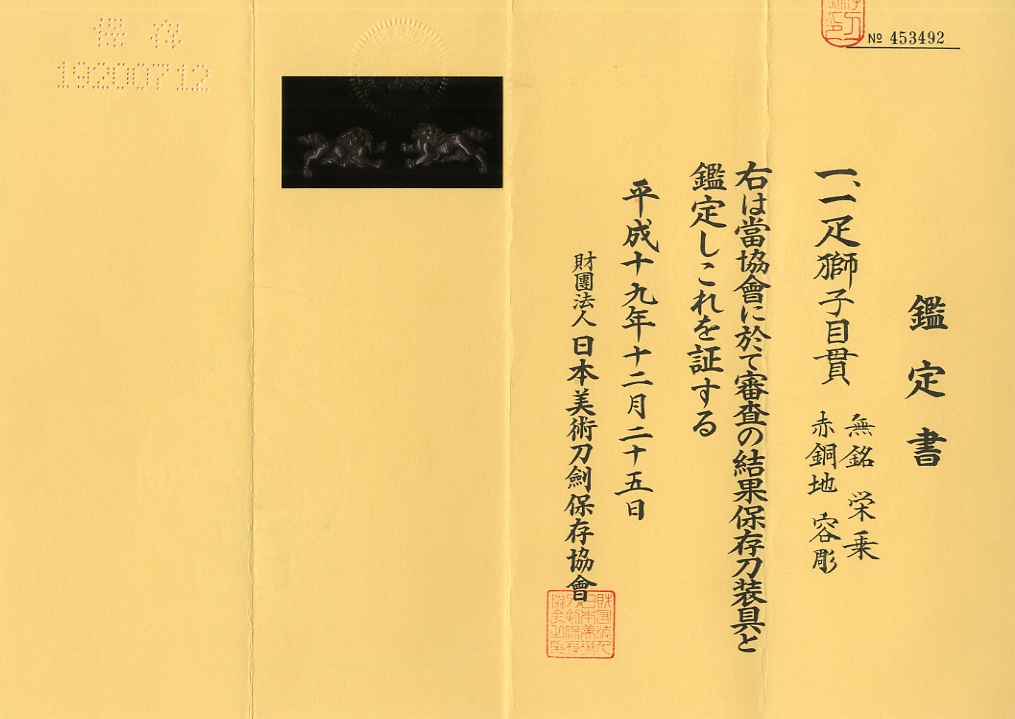 № 453492
鑑定書
一、一疋獅子目貫
無銘 栄乗
赤銅地 容彫
右は當協會に於て審査の結果保存刀装具と
鑑定しこれを証する
平成十九年十二月二十五日
財團法人日本美術刀劍保存協會
保存
19200712